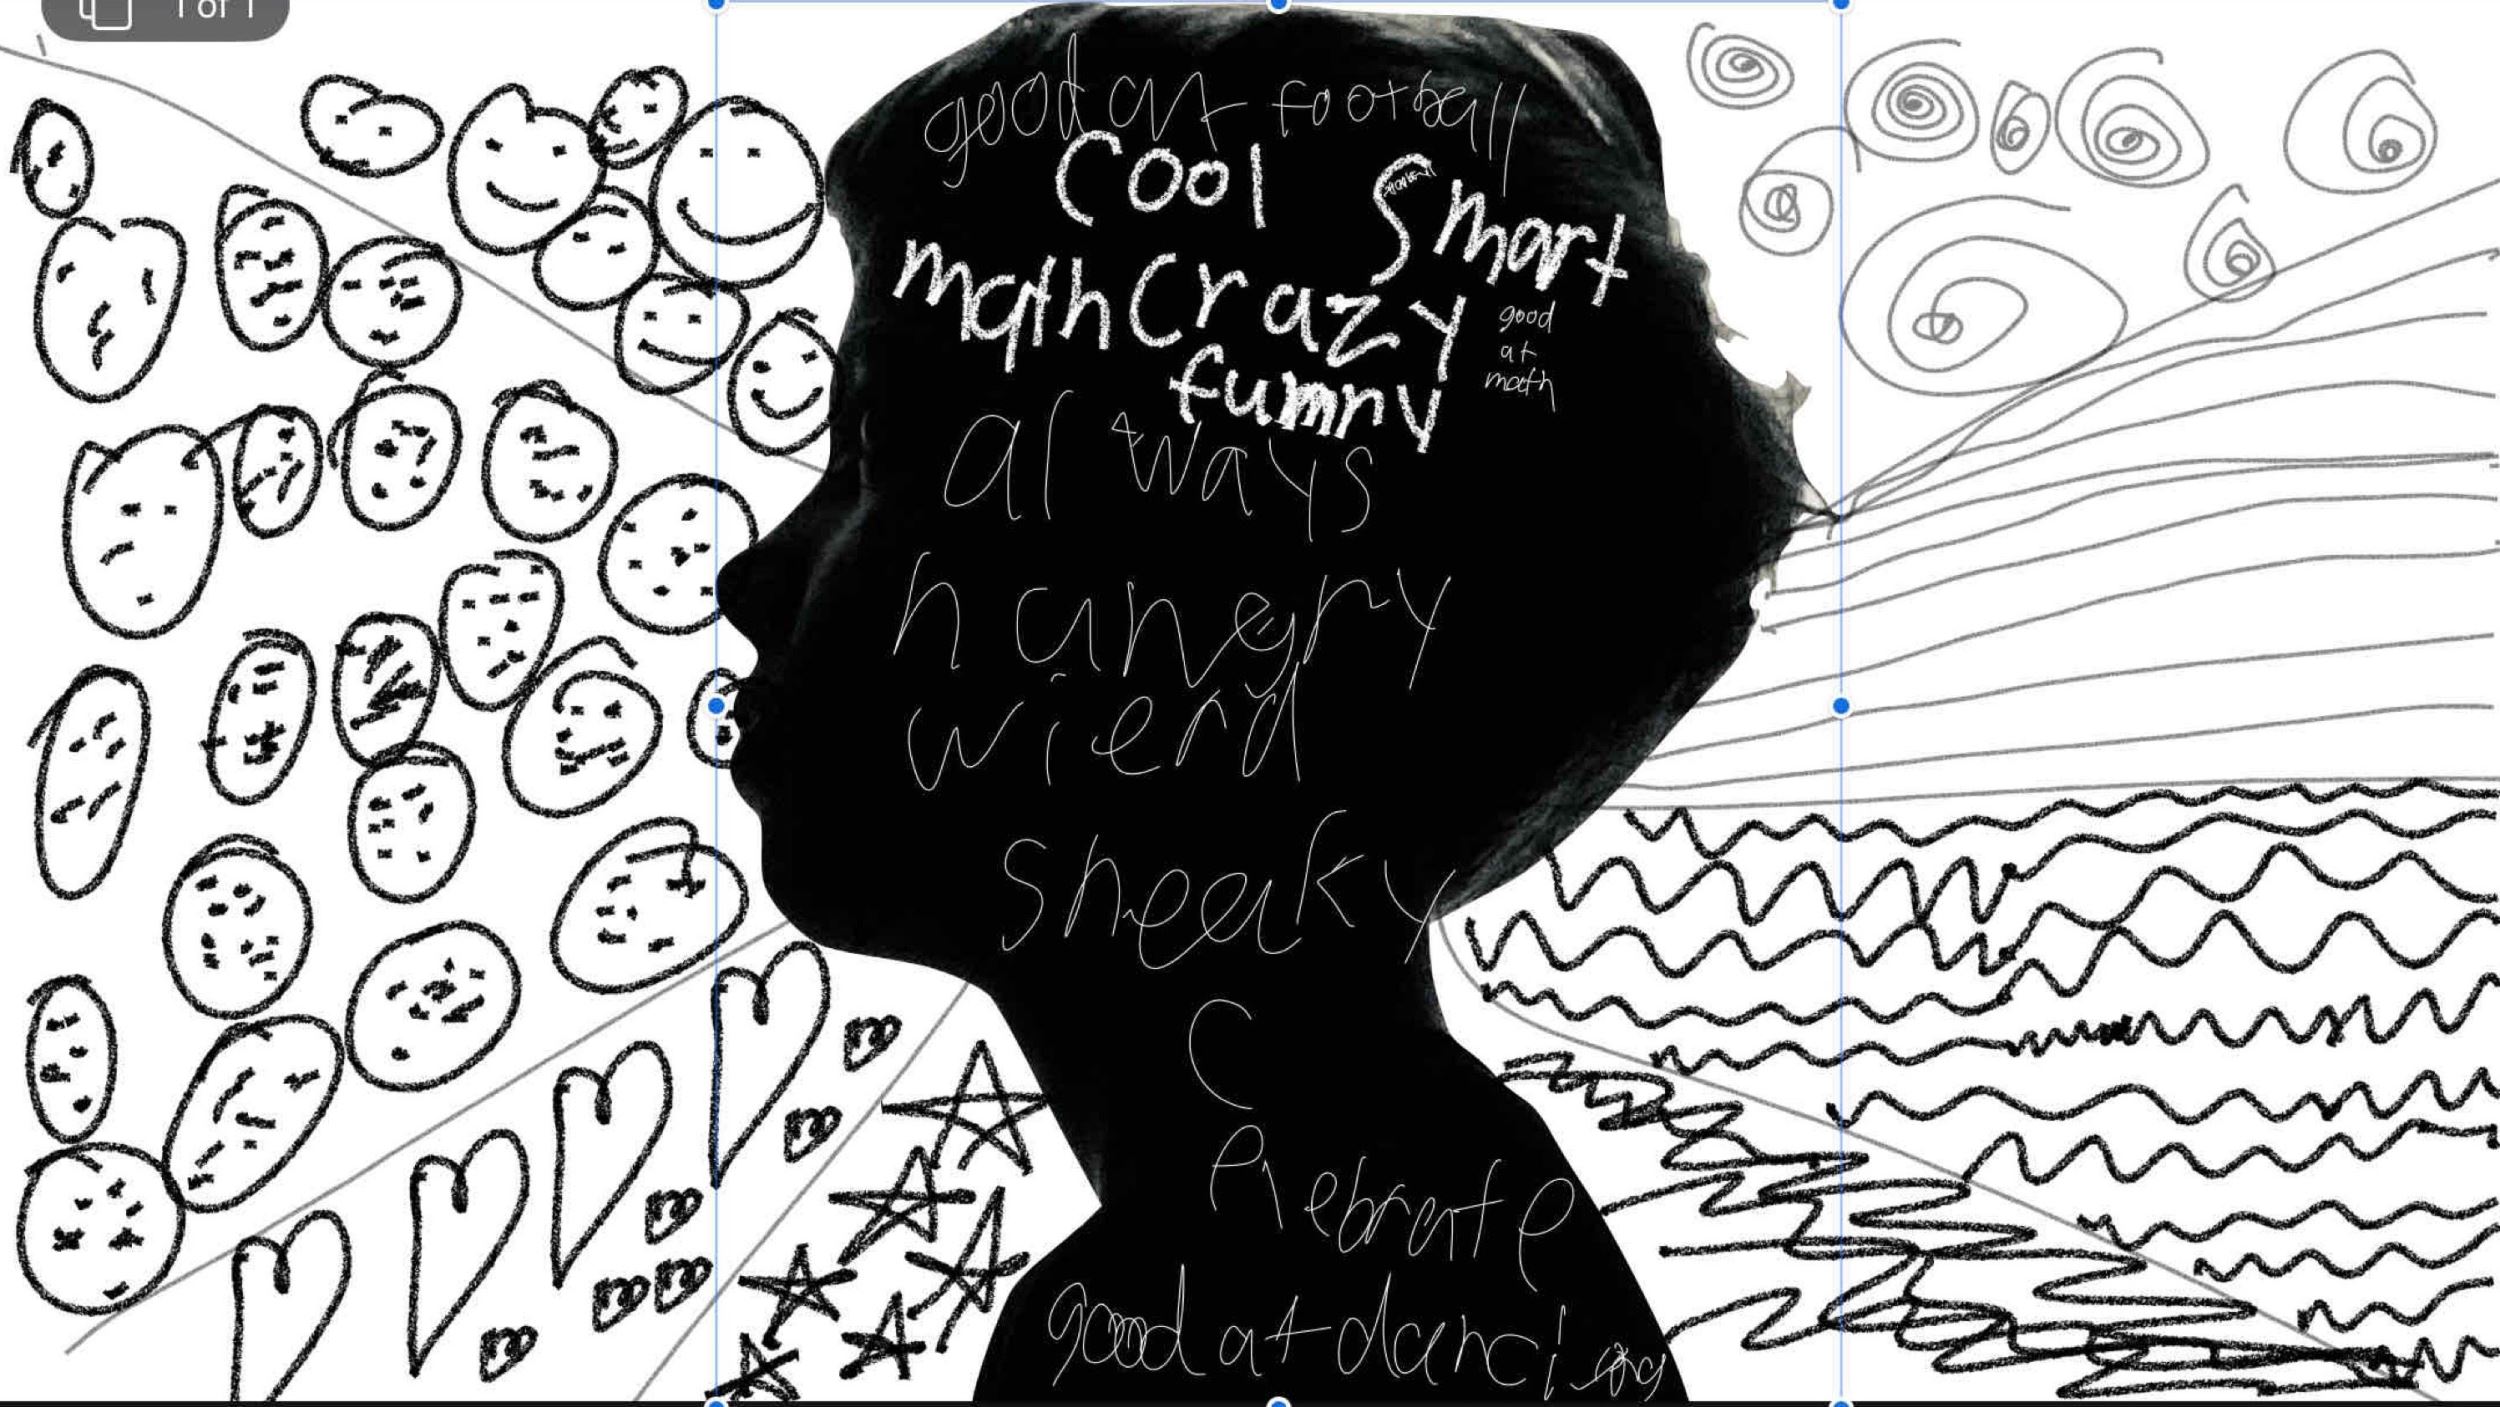 1 of 1
good at football
cool
smart
math crazy
good
at
math
fumny
always
hungry
wierd
sneaky
C
elebrate
good at danci